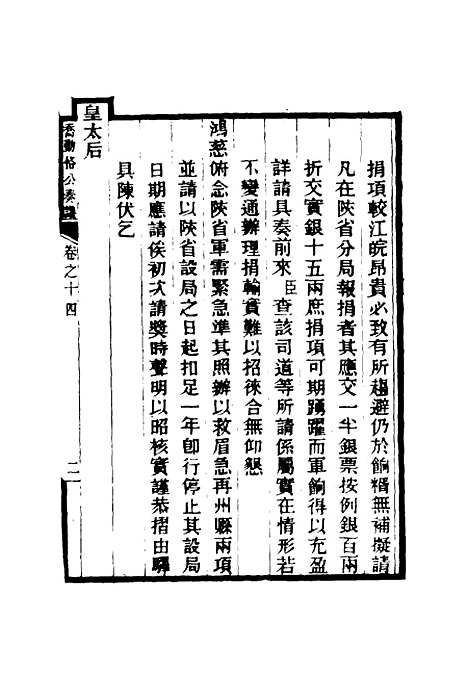 捐項較江皖昂貴必致有所趨避仍於餉糈無補擬請
凡在陝省分局報捐者其應交一半銀票按例銀百兩
折交實銀十五兩庶捐項可期踴躍而軍餉得以充盈
詳請具奏前來臣查該司道等所請係屬實在情形若
不變通辦理捐輸實難以招徠合無仰懇
鴻慈俯念陝省軍需緊急準其照辦以救眉急再州縣兩項
並請以陝省設局之日起扣足一年卽行停止其設局
日期應請俟初次請獎時聲明以昭核實謹恭摺由驛
具陳伏乞
皇太后
喬勤恪公奏議
卷之十四
二